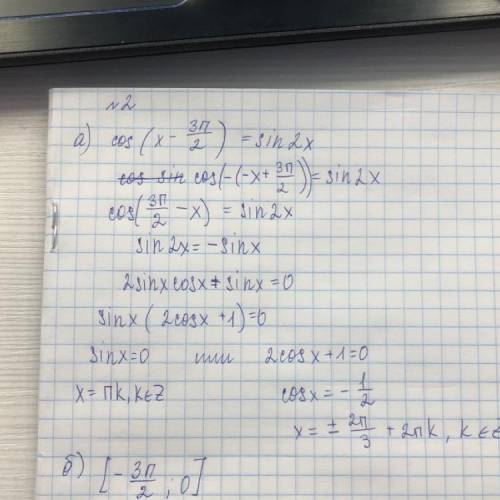 №2
а) cos(x - 3π/2) = sin2x
cos(-(-x + 3π/2)) = sin2x
cos(3π/2 - x) = sin2x
sin2x = -sinx
2sinxcosx + sinx = 0
sinx(2cosx + 1) = 0
sinx = 0 или 2cosx + 1 = 0
x = πk, k∈Z cosx = -1/2
x = ± 2π/3 + 2πk, k∈Z
б) [-3π/2; 0]